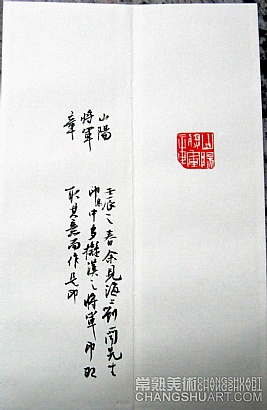 山陽
將軍
章
壬辰之春余見海上劉先生
印中多擬漢之將軍印
取其意而作是印
常熟美術 CHANGSHUART.COM
CHANGSHUART.COM